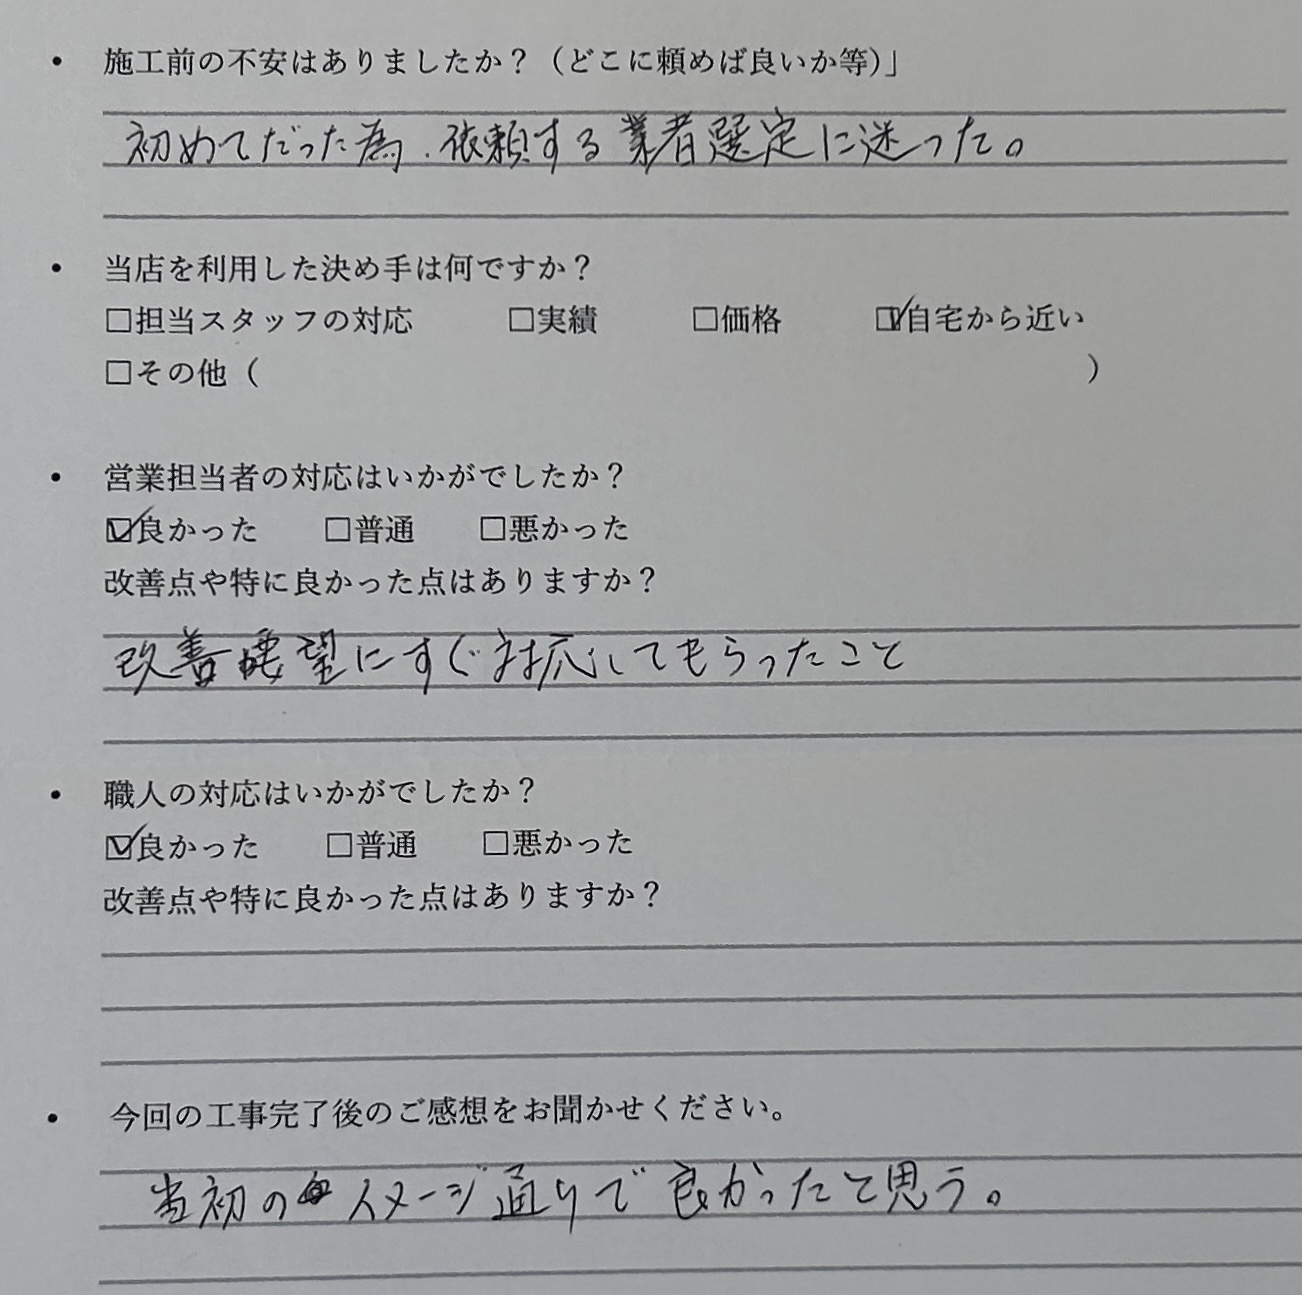 ・施工前の不安はありましたか？（どこに頼めば良いか等）」
初めてだった為、依頼する業者選定に迷った。
・当店を利用した決め手は何ですか？
□担当スタッフの対応　□実績　□価格　☑自宅から近い
□その他（　）
・営業担当者の対応はいかがでしたか？
☑良かった　□普通　□悪かった
改善点や特に良かった点はありますか？
改善要望にすぐ対応してもらったこと
・職人の対応はいかがでしたか？
☑良かった　□普通　□悪かった
改善点や特に良かった点はありますか？
・今回の工事完了後のご感想をお聞かせください。
当初のイメージ通りで良かったと思う。